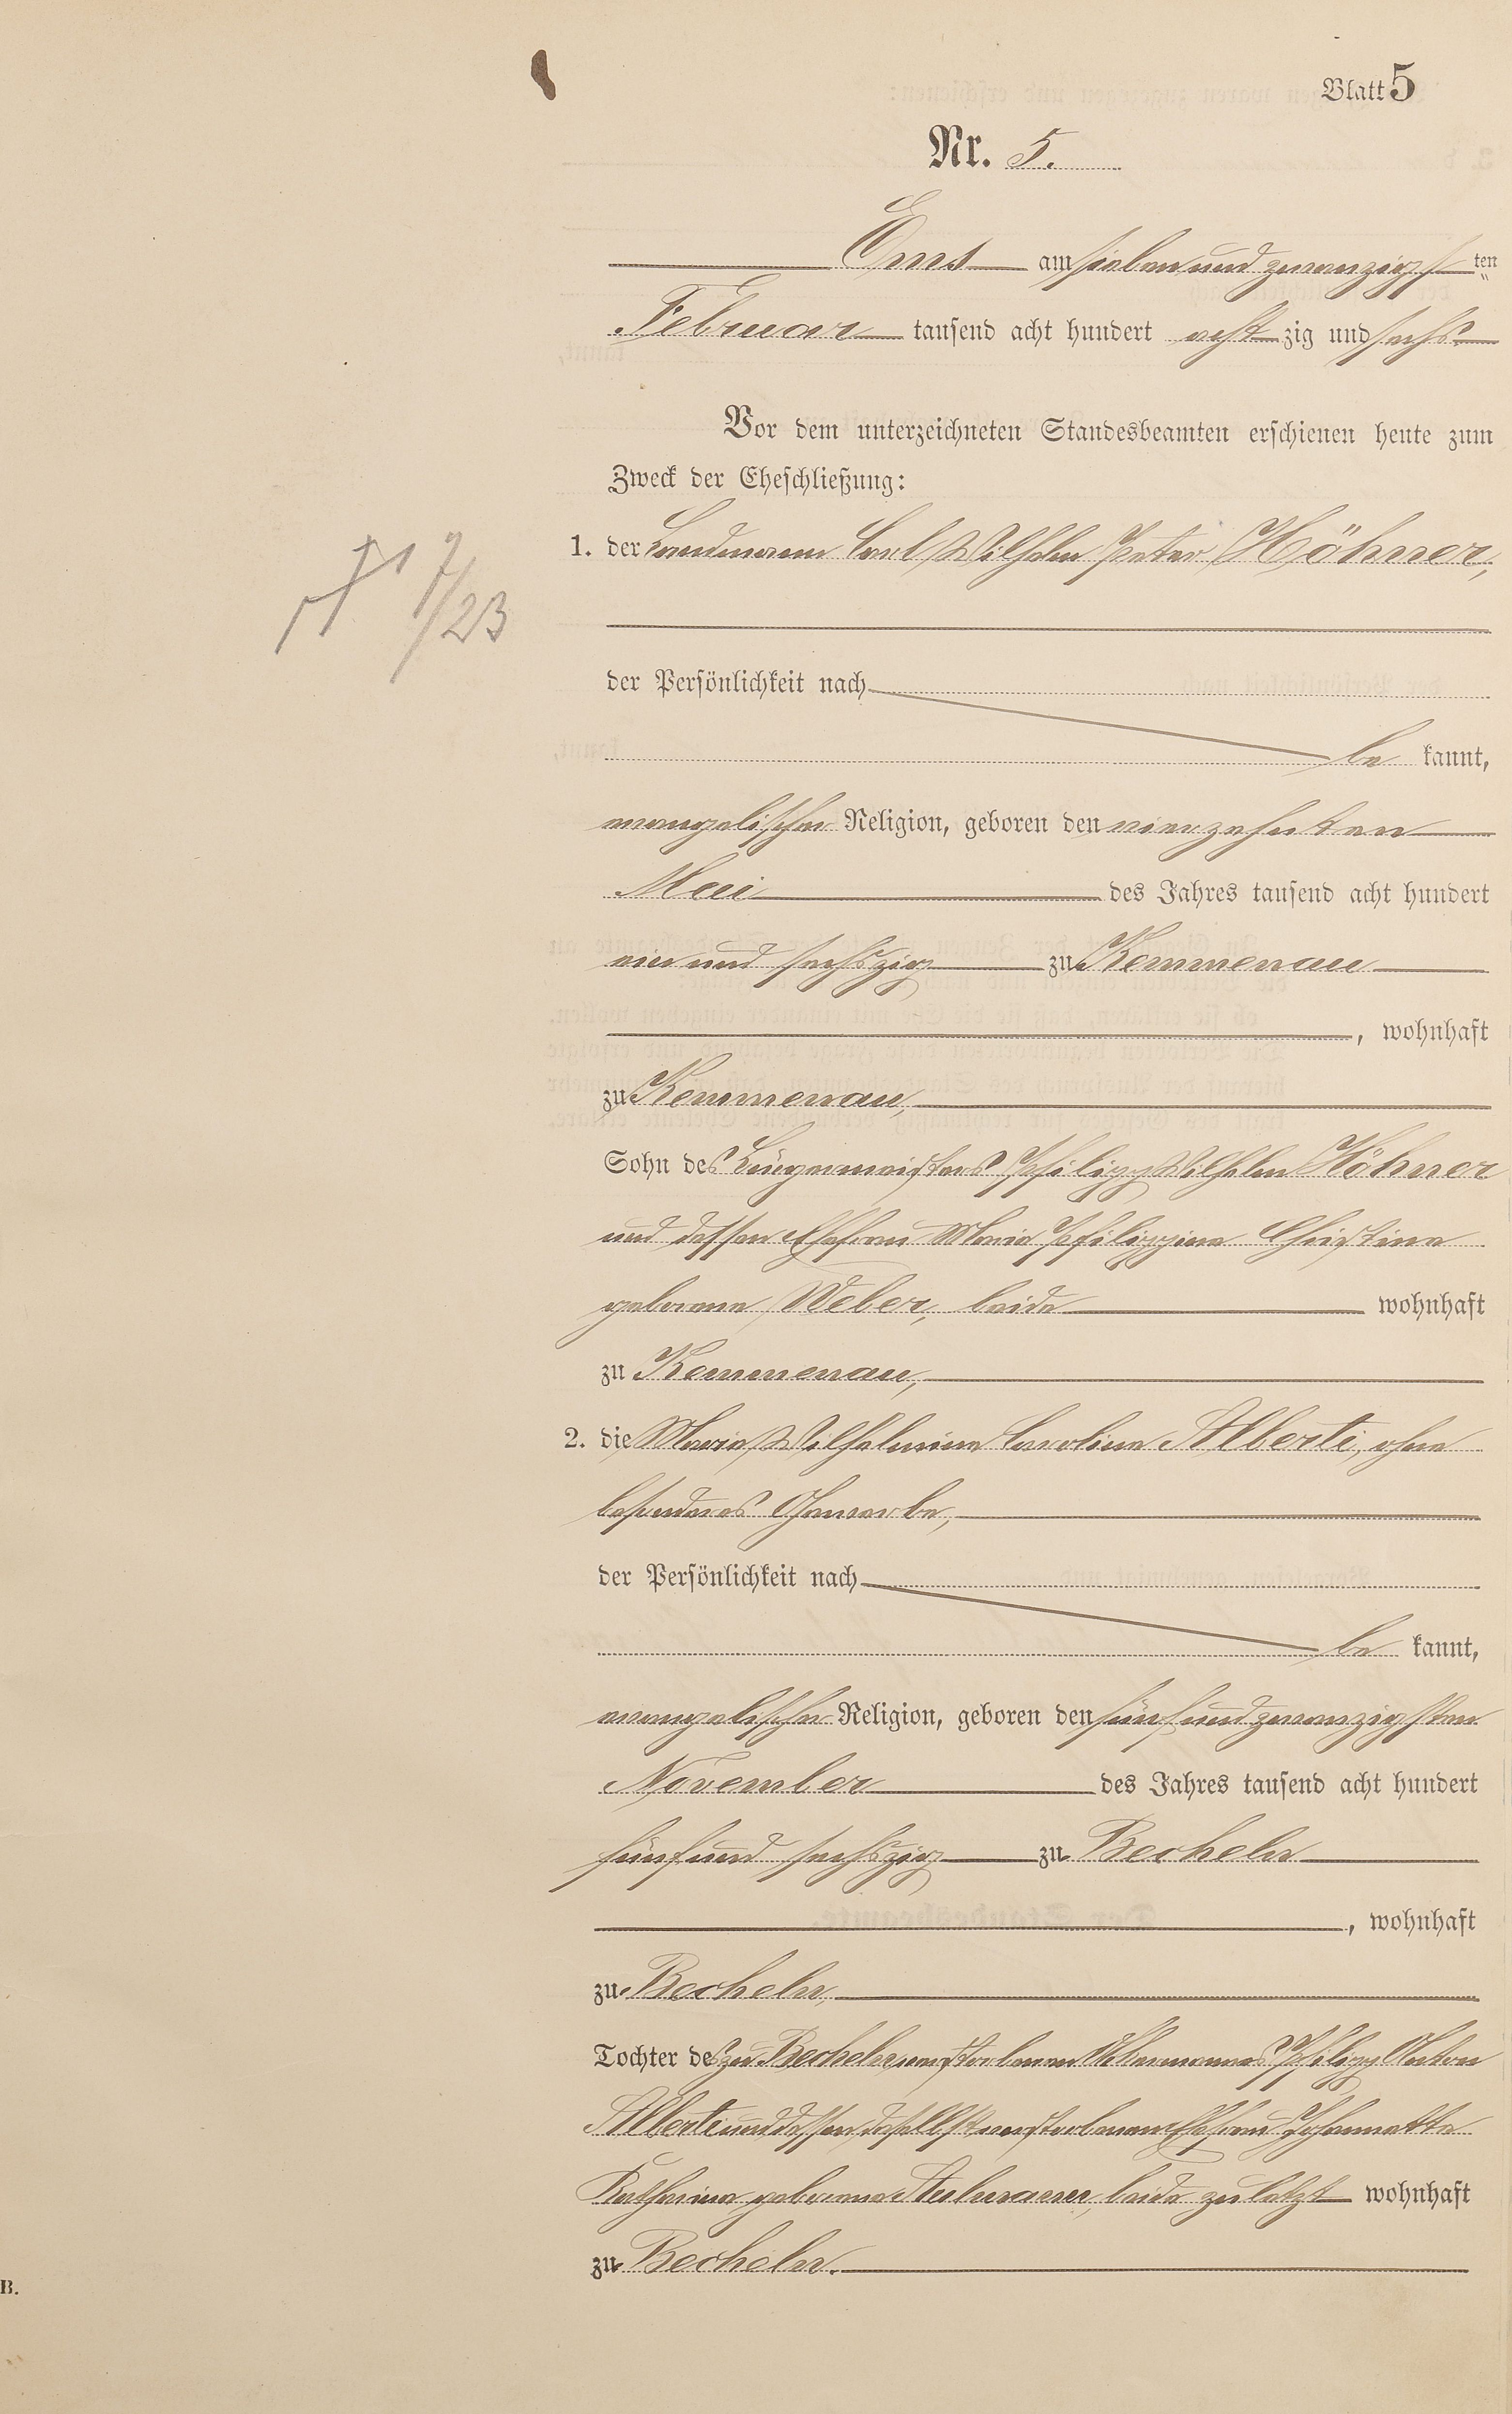 Blatt 5
Nr. 5.
Ems am sieben und zwanzigsten
Februar tausend acht hundert achtzig und sechs
Vor dem unterzeichneten Standesbeamten erschienen heute zum
Zweck der Eheschließung:
1. der Landmann Carl Wilhelm Peter Höhner,
der Persönlichkeit nach
be kannt,
evangelischer Religion, geboren den vierzehnten
Mai des Jahres tausend acht hundert
vier und sechszig zu Kemmenau
, wohnhaft
zu Kemmenau,
Sohn des Bürgermeisters Philipp Wilhelm Höhner
und dessen Ehefrau Maria Philippine Christine
geborene Weber, beide wohnhaft
zu Kemmenau,
2. die Maria Wilhelmine Caroline Alberti, ohne
besonderes Gewerbe,
der Persönlichkeit nach
be kannt,
evangelischer Religion, geboren den fünf und zwanzigsten
November des Jahres tausend acht hundert
fünf und sechszig zu Becheln
, wohnhaft
zu Becheln,
Tochter des zu Becheln verstorbenen Ackermannes Philipp Anton
Alberti und dessen daselbst verstorbenen Ehefrau Johannette
Katharine geborene beide zuletzt wohnhaft
zu Becheln.
B.